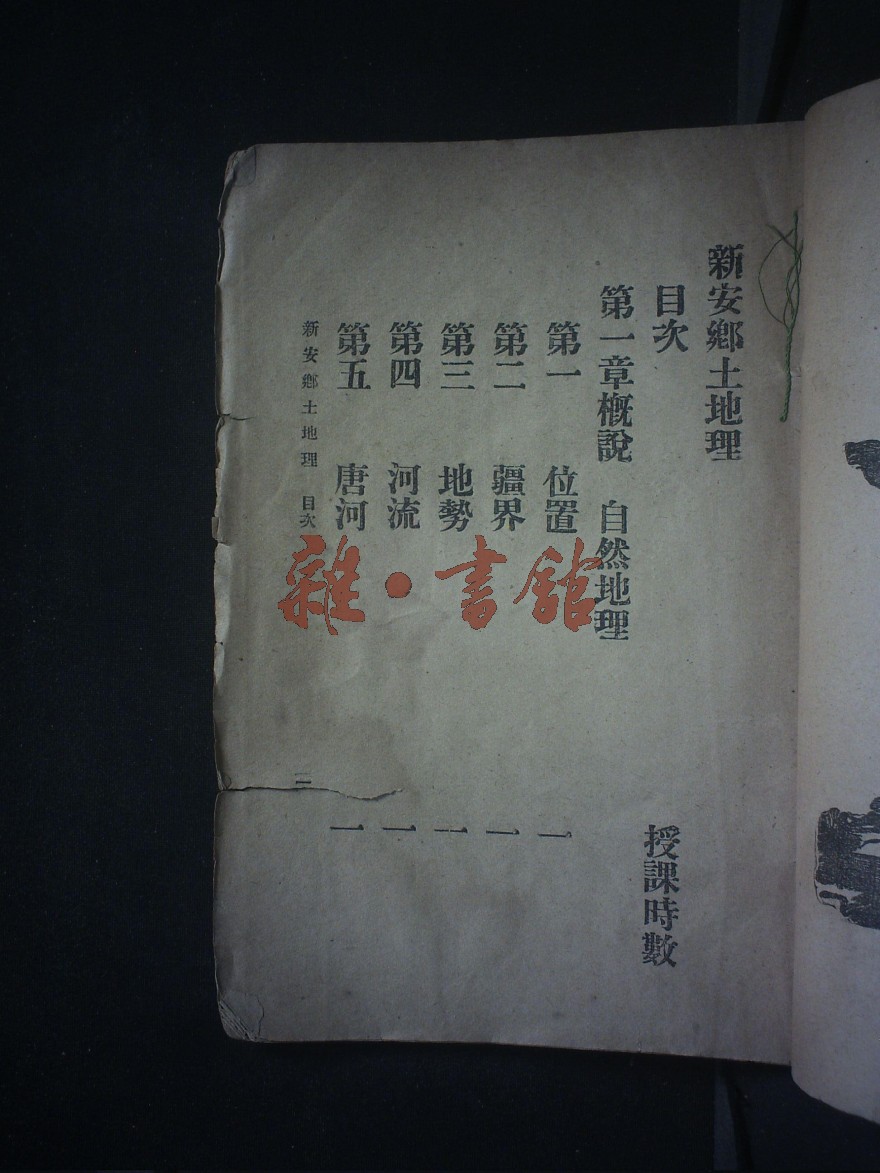 新安鄉土地理
目次
授課時數
第一章概說 自然地理
第一 位置 一
第二 疆界 一
第三 地勢 一
第四 河流 一
第五 唐河 一
新安鄉土地理 目次
雜·書館